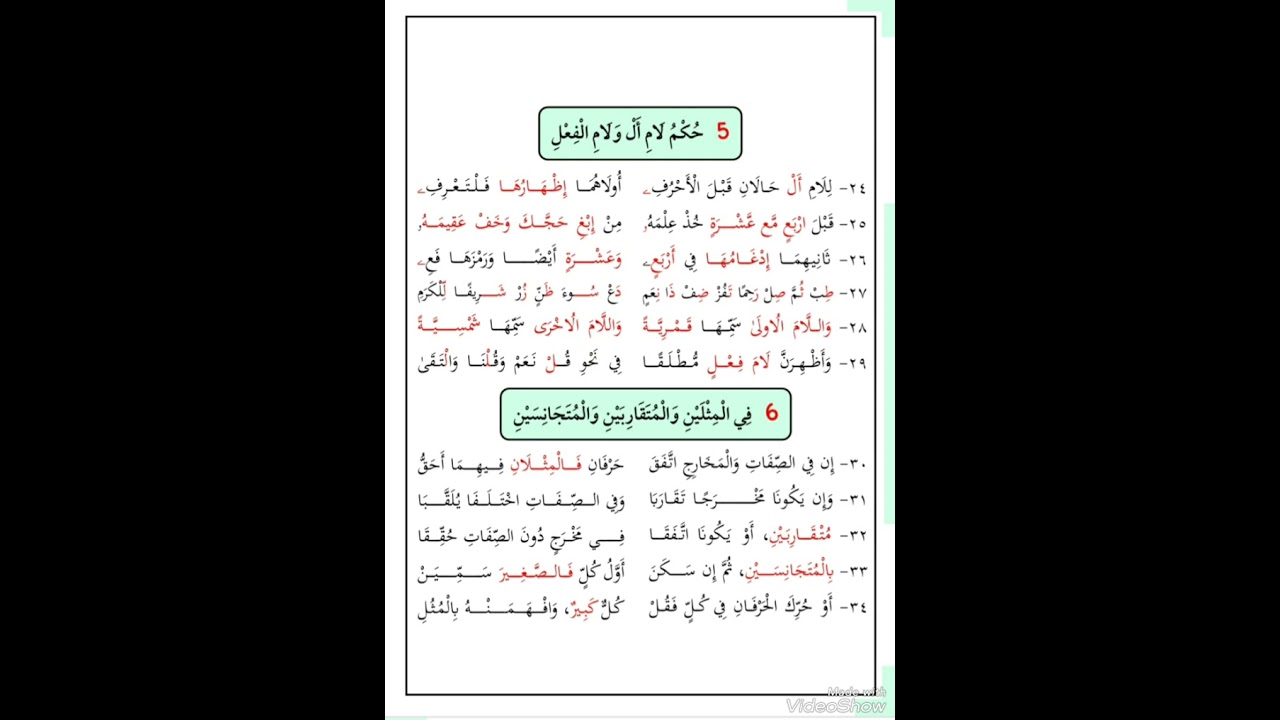 5 حُكْمُ لَامِ أَلْ وَلَامِ الْفِعْلِ
٢٤- لِلَامِ أَلْ حَالَانِ قَبْلَ الْأَحْرُفِے أُولَاهُمَا إِظْهَارُهَا فَلْتَعْرِفِے
٢٥- قَبْلَ ارْبَعٍ مَّع عَّشْرَةٍ خُذْ عِلْمَهُۥ مِنْ إِبْغِ حَجَّكَ وَخَفْ عَقِيمَهُۥ
٢٦- ثَانِيهِمَا إِدْغَامُهَا فِي أَرْبَعِے وَعَشْرَةٍ أَيْضًا وَرَمْزَهَا فَعِے
٢٧- طِبْ ثُمَّ صِلْ رَحِمًا تَفُزْ ضِفْ ذَا نِعَمٍ دَعْ سُوءَ ظَنٍّ زُرْ شَرِيفًا لِّلْكَرَمِ
٢٨- وَاللَّامَ الُاولَىٰ سَمِّهَا قَمْرِيَّةً وَاللَّامَ الُاخْرَى سَمِّهَا شَمْسِيَّةً
٢٩- وَأَظْهِرَنَّ لَامَ فِعْلٍ مُّطْلَقًا فِي نَحْوِ قُلْ نَعَمْ وَقُلْنَا وَالْتَقَىٰ
6 فِي الْمِثْلَيْنِ وَالْمُتَقَارِبَيْنِ وَالْمُتَجَانِسَيْنِ
٣٠- إِن فِي الصِّفَاتِ وَالْمَخَارِجِ اتَّفَقَ حَرْفَانِ فَالْمِثْلَانِ فِيهِمَا أَحَقُّ
٣١- وَإِن يَكُونَا مَخْرَجًا تَقَارَبَا وَفِي الصِّفَاتِ اخْتَلَفَا يُلَقَّبَا
٣٢- مُتْقَارِبَيْنِ، أَوْ يَكُونَا اتَّفَقَا فِي مَخْرَجٍ دُونَ الصِّفَاتِ حُقِّقَا
٣٣- بِالْمُتَجَانِسَيْنِ، ثُمَّ إِن سَكَنَ أَوَّلُ كُلٍّ فَالصَّغِيرَ سَمِّيَنْ
٣٤- أَوْ حُرِّكَ الْحَرْفَانِ فِي كُلٍّ فَقُلْ كُلٌّ كَبِيرٌ، وَافْهَمَنْهُ بِالْمُثُلِ
Made with
VideoShow